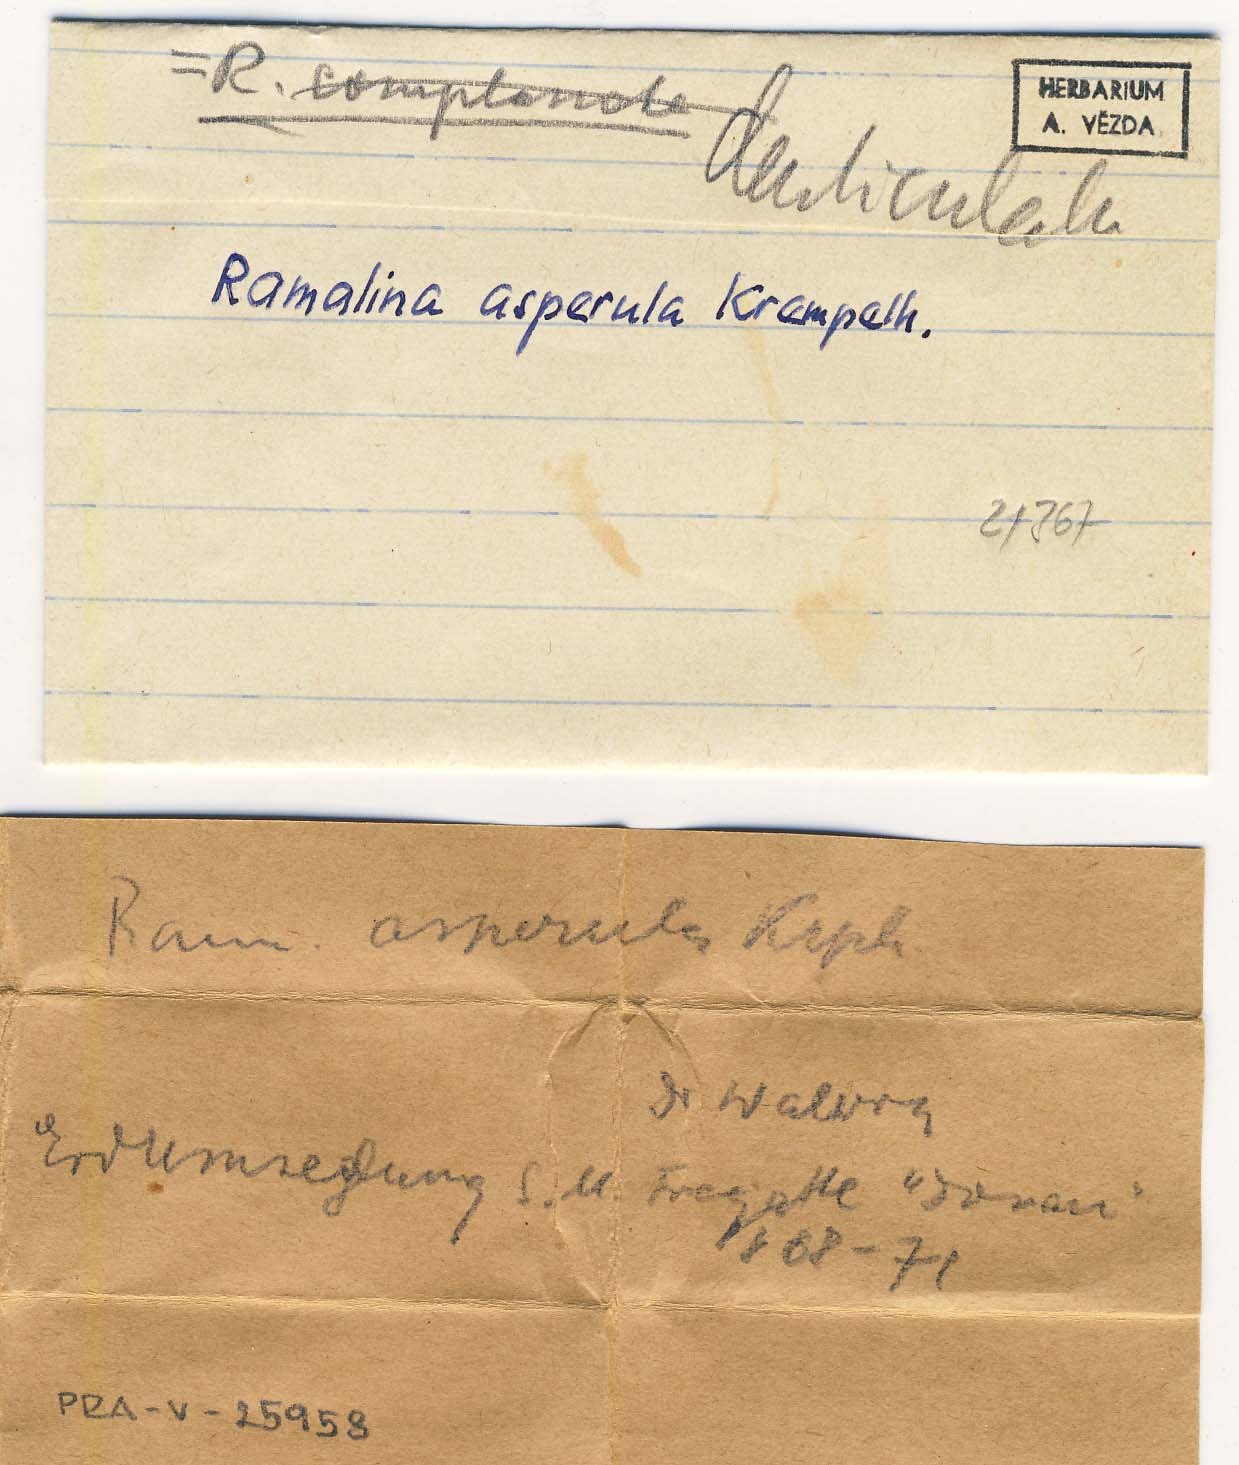 = R. complanata
denticulata
HERBARIUM
A. VĚZDA
Ramalina asperula Krempelh.
21367
Ram. asperula Krplh
Dr Wawra
Erdumseglung S. M. Fregatte "Donau"
1868-71
PRA-V-25958